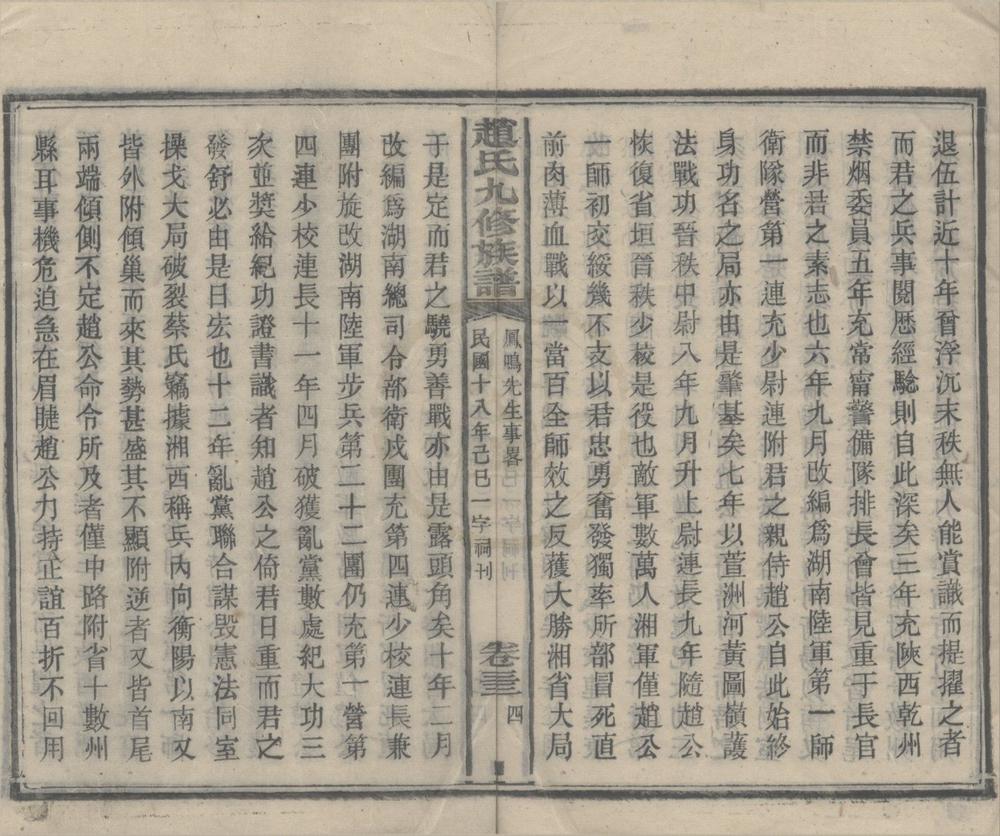 退伍計近十年曾浮沉末秩無人能賞識而提擢之者
而君之兵事閱歴經騐則自此深矣三年充陝西乾州
禁烟委員五年充常甯警備隊排長曾皆見重于長官
而非君之素志也六年九月改編爲湖南陸軍第一師
衛隊營第一連充少尉連附君之親侍趙公自此始終
身功名之局亦由是肇基矣七年以萱洲河黃圖嶺護
法戰功晉秩中尉八年九月升上尉連長九年隨趙公
恢復省垣晉秩少校是役也敵軍數萬人湘軍僅趙公
一師初交綏幾不支以君忠勇奮發獨率所部冒死直
前肉薄血戰以一當百全師效之反獲大勝湘省大局
趙氏九修族譜
鳳鳴先生事畧
民國十八年己巳一字祠刊
卷三三
四
于是定而君之驍勇善戰亦由是露頭角矣十年二月
改編爲湖南總司令部衛戍團充第四連少校連長兼
團附旋改湖南陸軍步兵第二十二團仍充第一營第
四連少校連長十一年四月破獲亂黨數處紀大功三
次並奬給紀功證書識者知趙公之倚君日重而君之
發舒必由是日宏也十二年亂黨聯合謀毁憲法同室
操戈大局破裂蔡氏竊據湘西稱兵內向衡陽以南又
皆外附傾巢而來其勢甚盛其不顯附逆者又皆首尾
兩端傾側不定趙公命令所及者僅中路附省十數州
縣耳事機危迫急在眉睫趙公力持正誼百折不回用